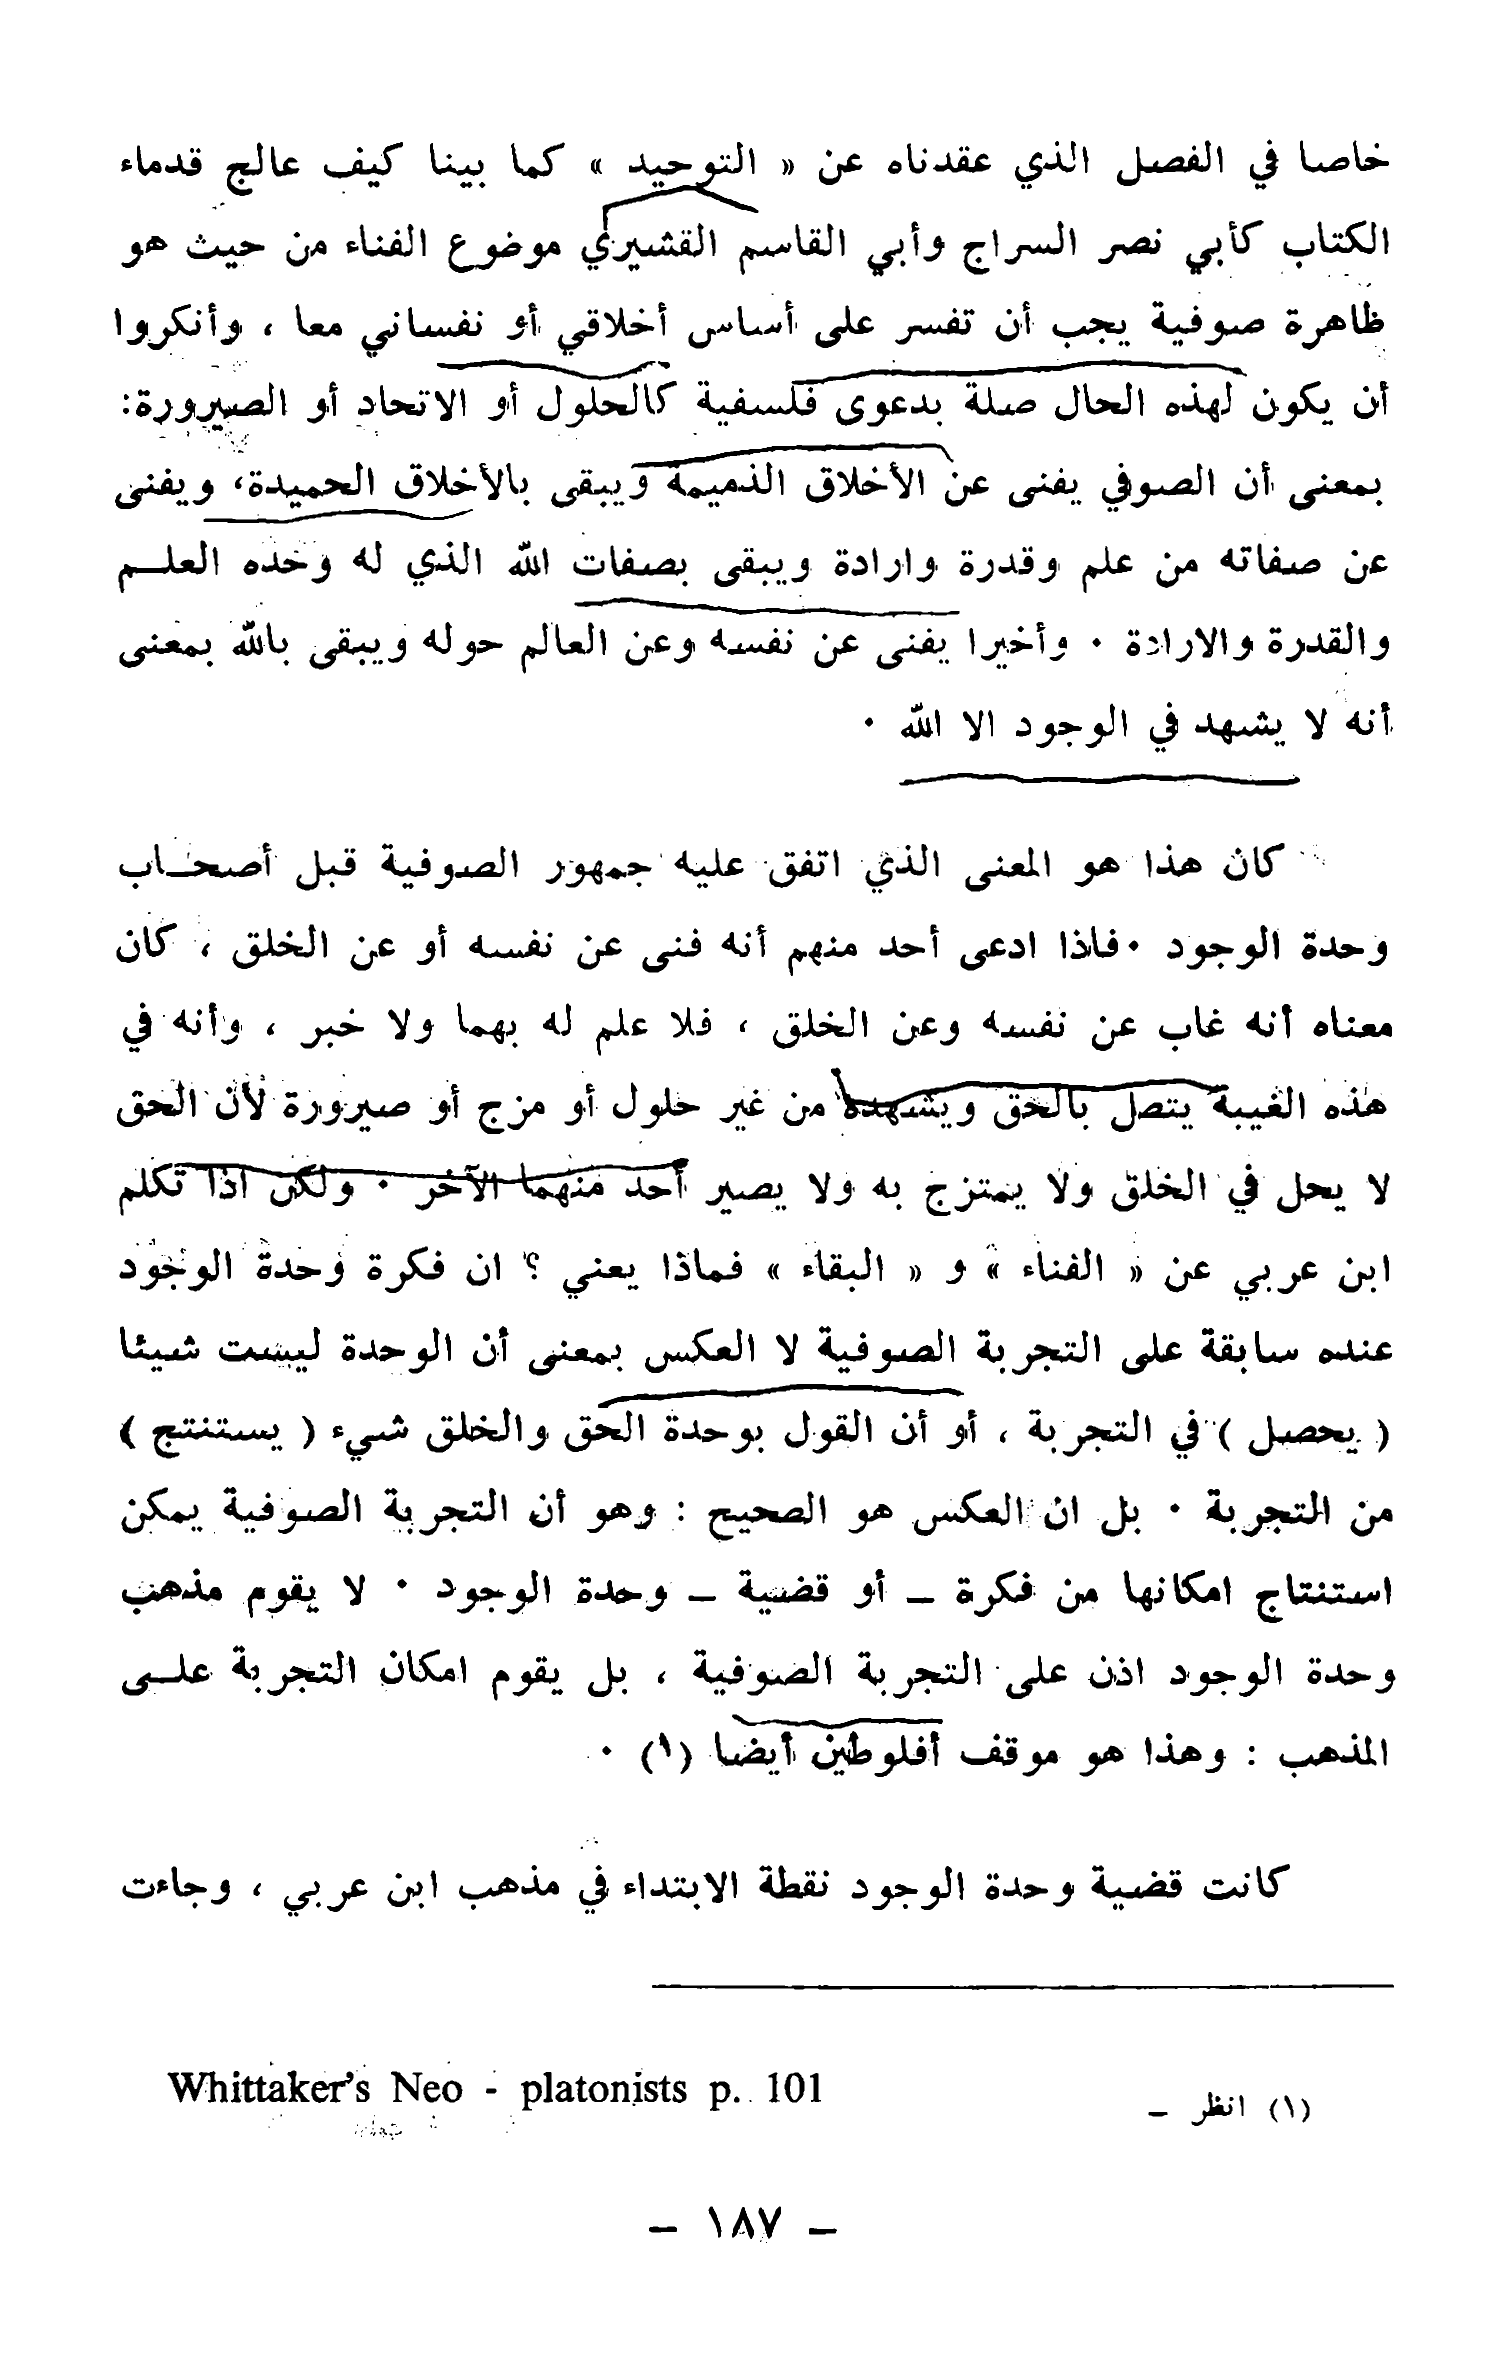 خاصا في الفصل الذي عقدناه عن « التوحيد » كما بينا كيف عالج قدماء
الكتاب كأبي نصر السراج وأبي القاسم القشيري موضوع الفناء من حيث هو
ظاهرة صوفية يجب أن تفسر على أساس أخلاقي أو نفساني معا ، وأنكروا
أن يكون لهذه الحال صلة بدعوى فلسفية كالحلول أو الاتحاد أو الصيرورة:
بمعنى أن الصوفي يفنى عن الأخلاق الذميمة ويبقى بالأخلاق الحميدة، ويفنى
عن صفاته من علم وقدرة وارادة ويبقى بصفات الله الذي له وحده العلـم
والقدرة والارادة ٠ وأخيرا يفنى عن نفسه وعن العالم حوله ويبقى بالله بمعنى
أنه لا يشهد في الوجود الا الله ٠
كان هذا هو المعنى الذي اتفق عليه جمهور الصوفية قبل أصحـاب
وحدة الوجود ٠ فاذا ادعى أحد منهم أنه فنى عن نفسه أو عن الخلق ، كان
معناه أنه غاب عن نفسه وعن الخلق ، فلا علم له بهما ولا خبر ، وأنه في
هذه الغيبة يتصل بالحق ويشهده من غير حلول أو مزج أو صيرورة لأن الحق
لا يحل في الخلق ولا يمتزج به ولا يصير أحد منهما الآخر ٠ ولكن اذا تكلم
ابن عربي عن « الفناء » و « البقاء » فماذا يعني ؟ ان فكرة وحدة الوجود
عنده سابقة على التجربة الصوفية لا العكس بمعنى أن الوحدة ليست شيئا
( يحصل ) في التجربة ، أو أن القول بوحدة الحق والخلق شيء ( يستنتج )
من التجربة ٠ بل ان العكس هو الصحيح : وهو أن التجربة الصوفية يمكن
استنتاج امكانها من فكرة – أو قضية – وحدة الوجود ٠ لا يقوم مذهب
وحدة الوجود اذن على التجربة الصوفية ، بل يقوم امكان التجربة علـى
المذهب : وهذا هو موقف أفلوطين أيضا (١) ٠
كانت قضية وحدة الوجود نقطة الابتداء في مذهب ابن عربي ، وجاءت
(١) انظر – Whittaker's Neo - platonists p. 101
– ١٨٧ –